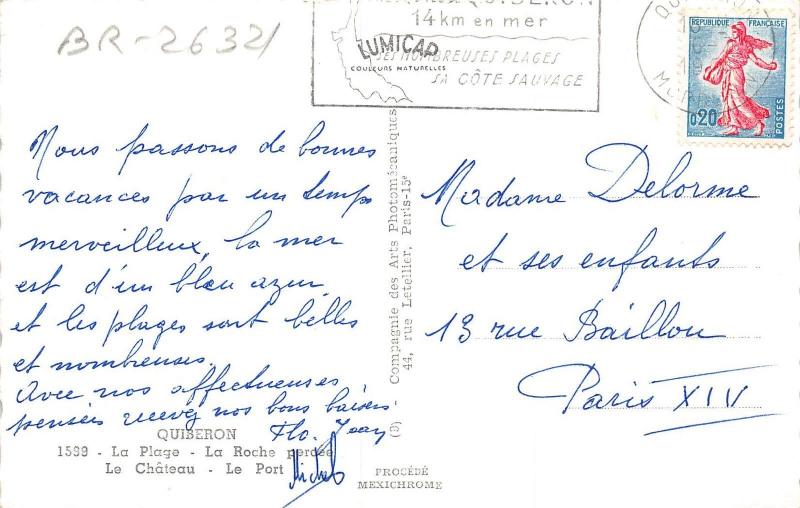 BR-26321
QUIBERON
14 km en mer
SES NOMBREUSES PLAGES
SA CÔTE SAUVAGE
LUMICAP
COULEURS NATURELLES
REPUBLIQUE FRANÇAISE
0,20
POSTES
Nous passons de bonnes
vacances par un temps
merveilleux, la mer
est d'un bleu azur
et les plages sont belles
et nombreuses.
Avec nos affectueuses
pensées recevez nos bons baisers
Flo. Jean
Michel
QUIBERON
1599 - La Plage - La Roche percée
Le Château - Le Port
(9) Compagnie des Arts Photomécaniques
44, rue Letellier, Paris-15e
PROCÉDÉ
MEXICHROME
Madame Delorme
et ses enfants
13 rue Baillou
Paris XIV